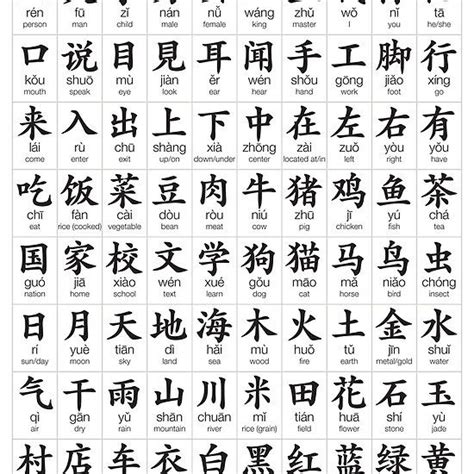 rén fū zǐ nán nǚ wáng zhǔ wǒ nǐ tā
person man child male female king master I you he/she
口 说 目 見 耳 聞 手 工 脚 行
kǒu shuō mù jiàn ěr wén shǒu gōng jiǎo xíng
mouth speak eye look ear hear hand work foot go
来 入 出 上 下 中 在 左 右 有
lái rù chū shàng xià zhōng zài zuǒ yòu yǒu
come enter exit up/on down/under center located at/in left right have
吃 饭 菜 豆 肉 牛 猪 鸡 鱼 茶
chī fàn cài dòu ròu niú zhū jī yú chá
eat rice (cooked) vegetable bean meat cow pig chicken fish tea
国 家 校 文 学 狗 猫 马 鸟 虫
guó jiā xiào wén xué gǒu māo mǎ niǎo chóng
nation home school text learn dog cat horse bird insect
日 月 天 地 海 木 火 土 金 水
rí yuè tiān dì hǎi mù huǒ tǔ jīn shuǐ
sun/day moon sky land sea wood fire earth metal/gold water
气 干 雨 山 川 米 田 花 石 玉
qì gān yǔ shān chuān mǐ tián huā shí yù
air dry rain mountain river rice (grain) field flower stone jade
村 店 车 衣 红 蓝 绿 黄